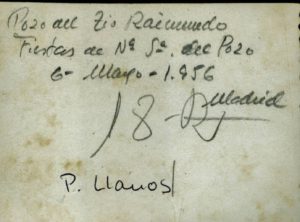 Pozo del Tio Raimundo
Fiestas de Nª Sª. del Pozo
6- Mayo - 1.956
Madrid
18-
P. Llanos